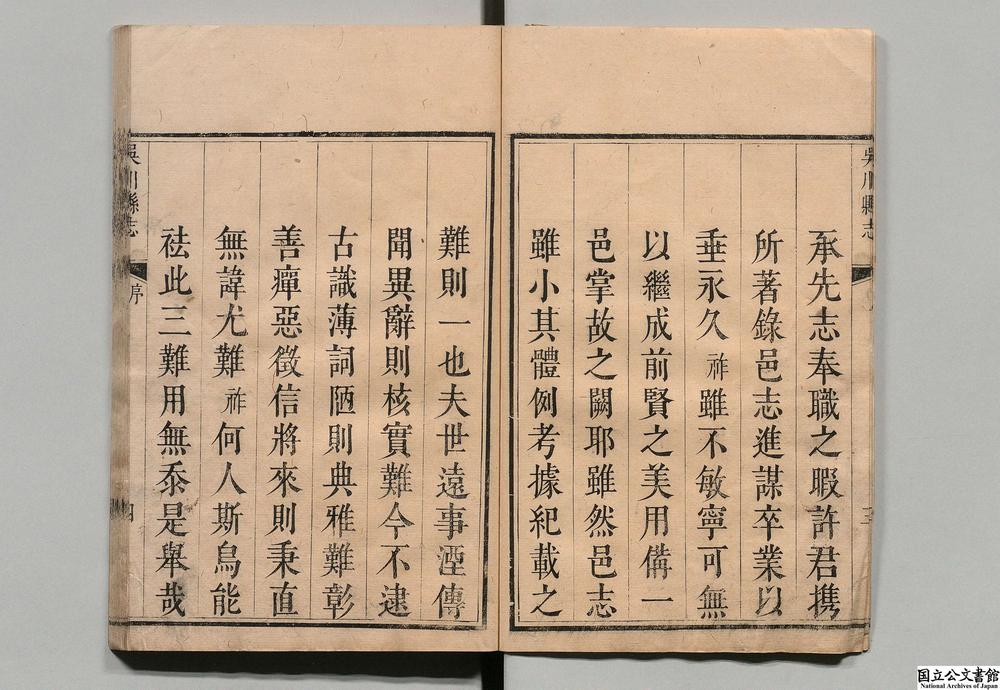 吳川縣志
三
承先志奉職之暇許君携
所著錄邑志進謀卒業以
垂永久祚雖不敏寧可無
以繼成前賢之美用備一
邑掌故之闕耶雖然邑志
雖小其體例考據紀載之
難則一也夫世遠事湮傳
聞異辭則核實難今不逮
古識薄詞陋則典雅難彰
善癉惡徵信將來則秉直
無諱尤難祚何人斯烏能
祛此三難用無忝是舉哉
吳川縣志
序
四
国立公文書館
National Archives of Japan